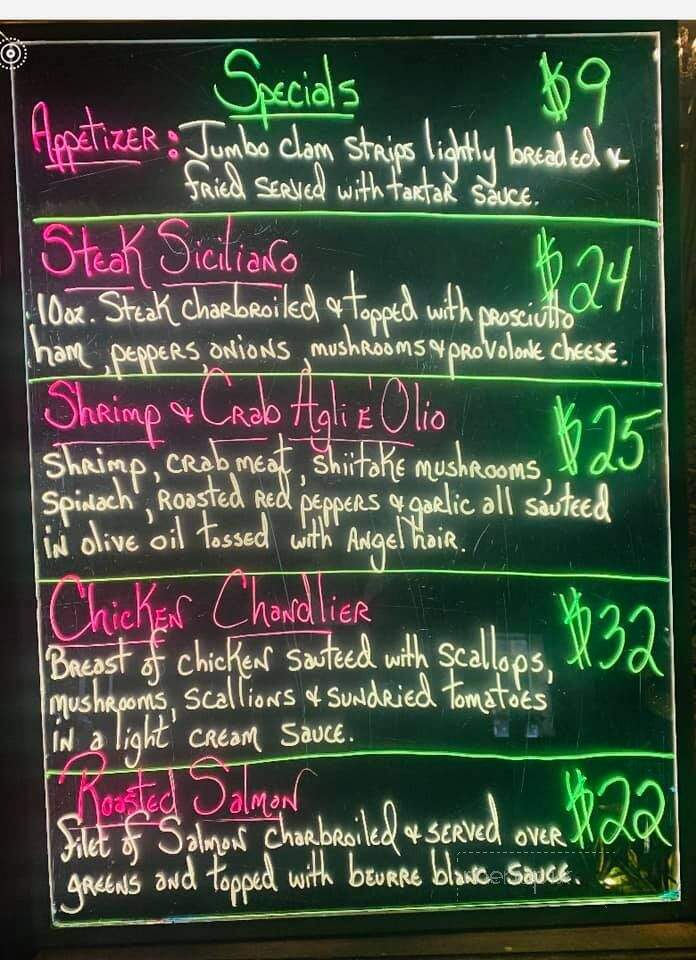 Specials $9
Appetizer: Jumbo clam strips lightly breaded &
fried served with tartar sauce.
Steak Siciliano $24
10oz. Steak charbroiled & topped with prosciutto
ham, peppers, onions, mushrooms & provolone cheese.
Shrimp & Crab Agli E' Olio $25
Shrimp, crabmeat, shiitake mushrooms,
spinach, roasted red peppers & garlic all sauteed
in olive oil tossed with Angel hair.
Chicken Chandlier $32
Breast of chicken sauteed with scallops,
mushrooms, scallions & sundried tomatoes
in a light cream sauce.
Roasted Salmon $22
filet of Salmon charbroiled & served over
greens and topped with beurre blanc sauce.